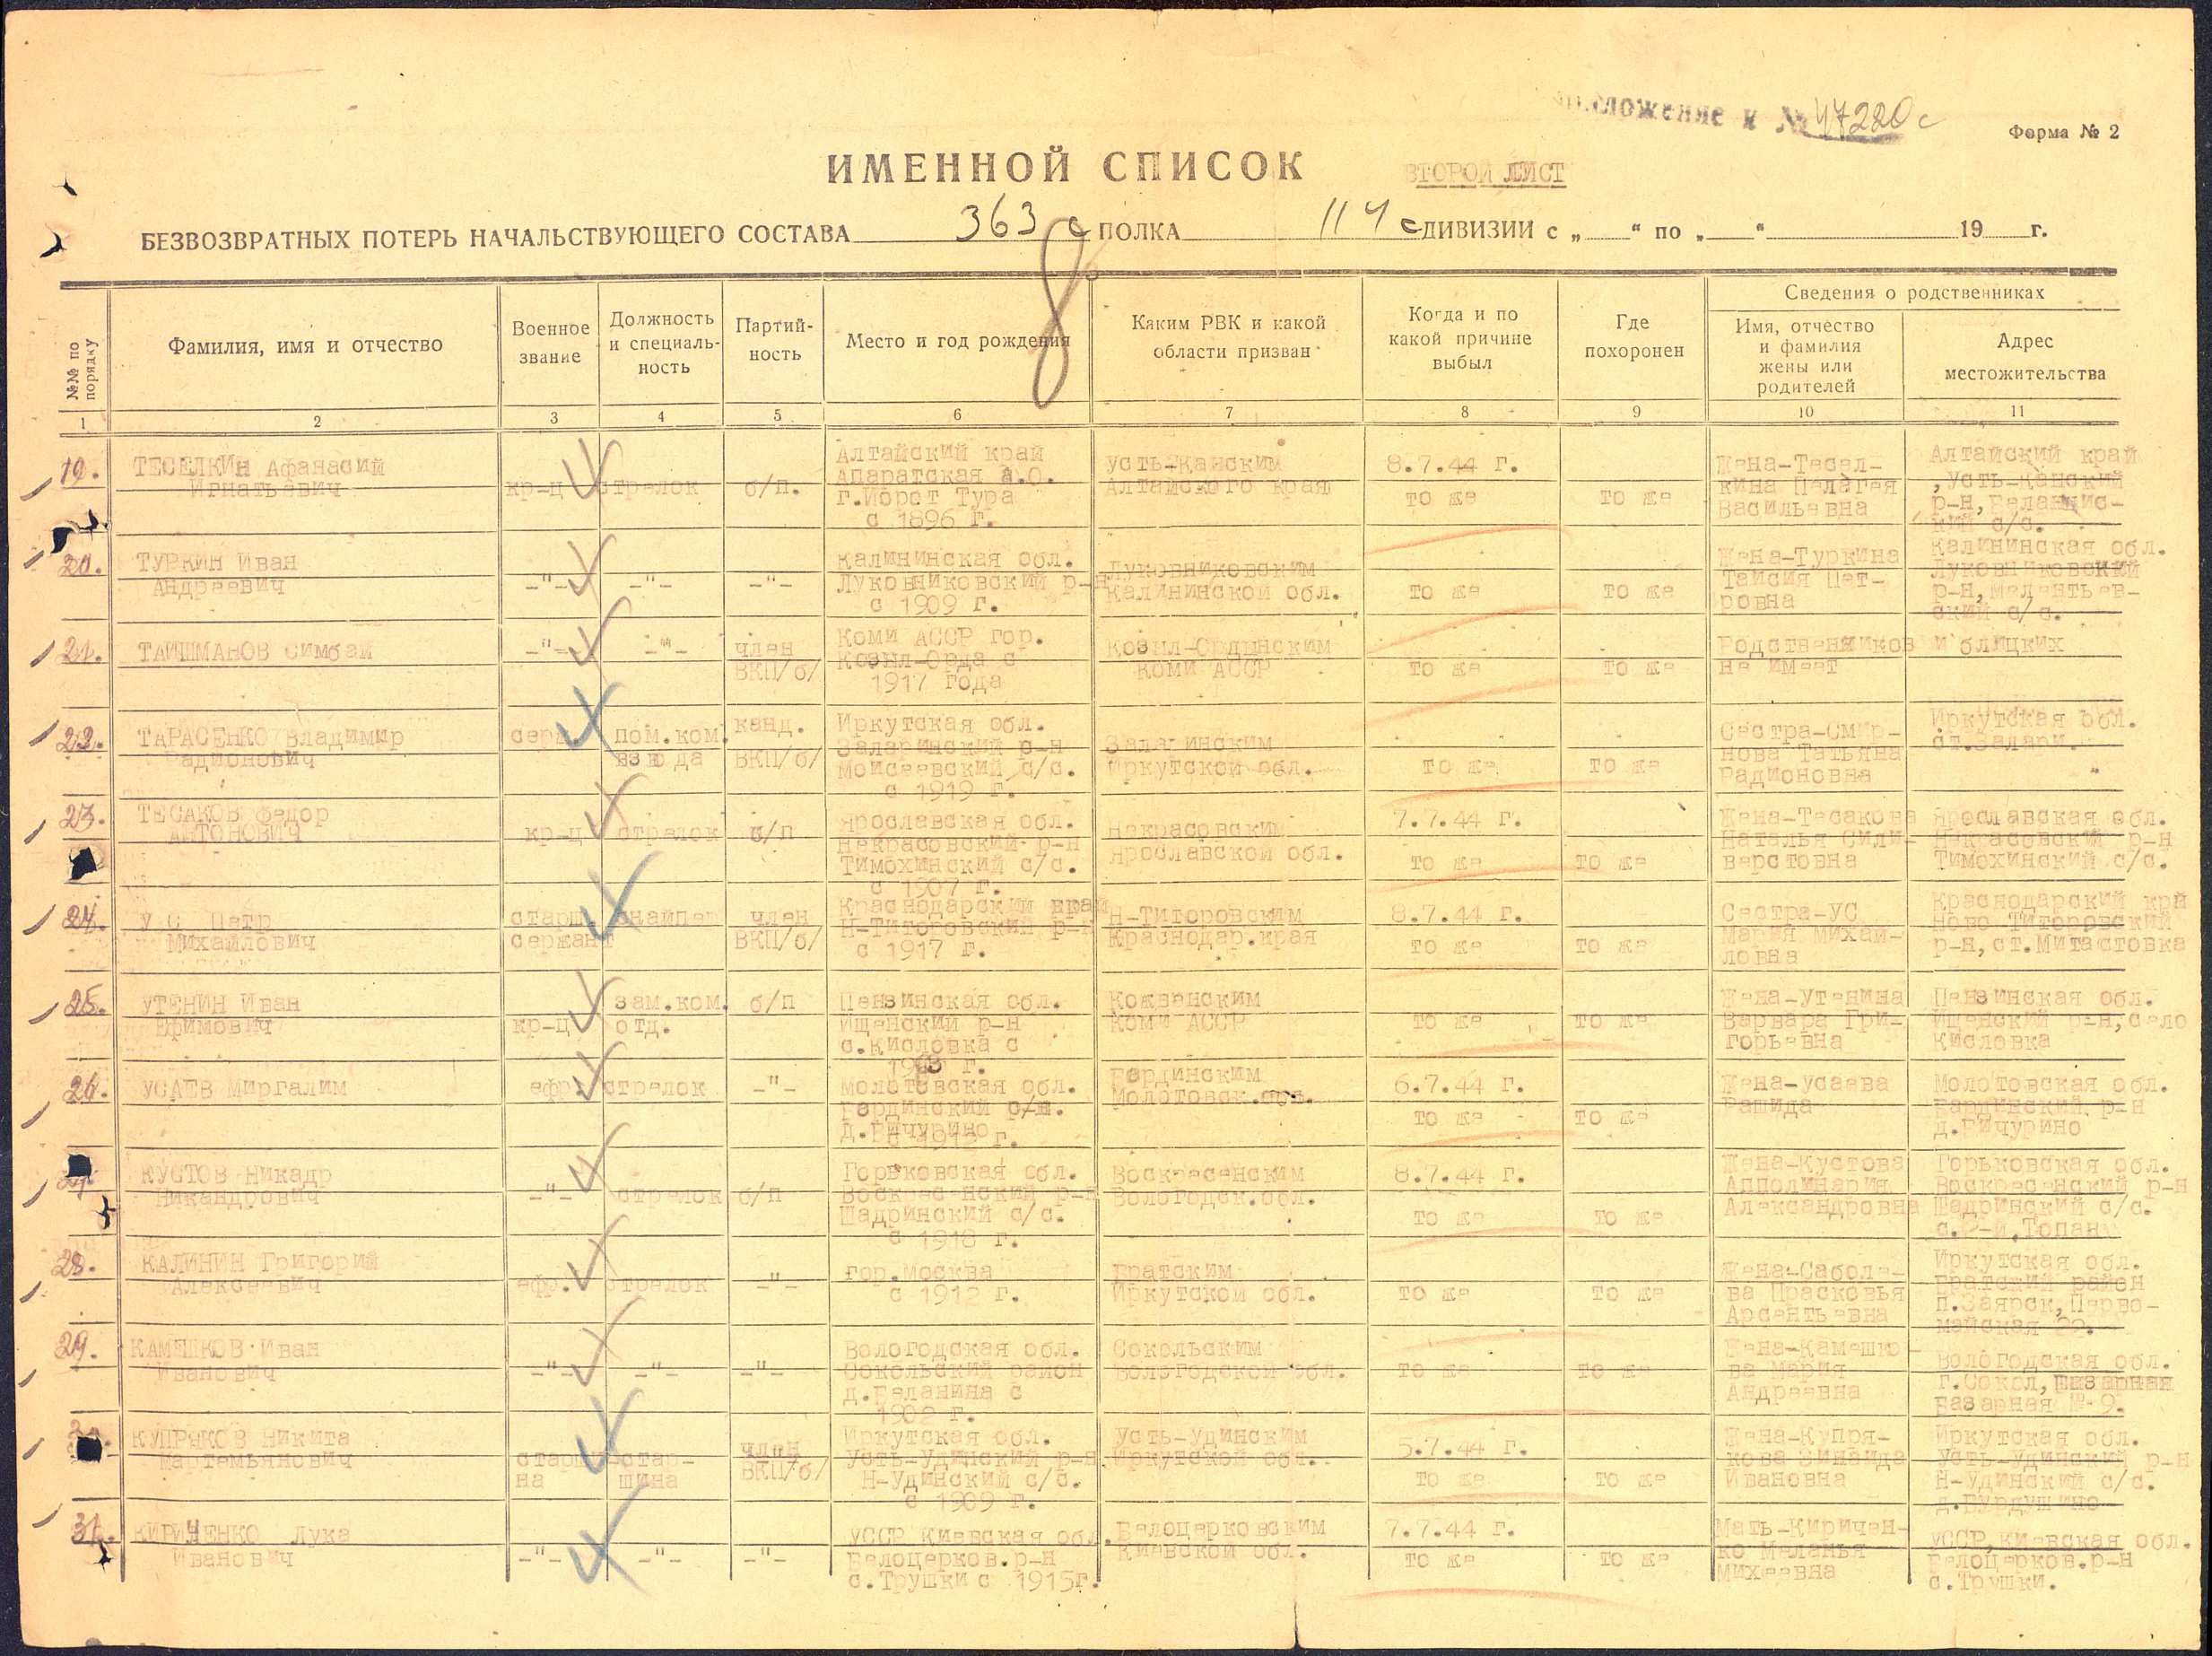 приложение к № 47220с
Форма № 2
ИМЕННОЙ СПИСОК
ВТОРОЙ ЛИСТ
БЕЗВОЗВРАТНЫХ ПОТЕРЬ НАЧАЛЬСТВУЮЩЕГО СОСТАВА 363 с ПОЛКА 114 с ДИВИЗИИ с „ “ по „ “ 19 г.
8
№№ по порядку
Фамилия, имя и отчество
Военное звание
Должность и специаль-ность
Партий-ность
Место и год рождения
Каким РВК и какой области призван
Когда и по какой причине выбыл
Где похоронен
Сведения о родственниках
Имя, отчество и фамилия жены или родителей
Адрес местожительства
1 2 3 4 5 6 7 8 9 10 11
19. ТЕСЕЛКИН Афанасий Игнатьевич
кр-ц стрелок б/п.
Алтайский край
Апаратская А.О.
г.Иорот Тура
с 1896 г.
Усть-Канским
Алтайского края
8.7.44 г.
то же то же
Жена-Тесел-
кина Пелагея
Васильевна
Алтайский край
,Усть-Канский
р-н,
с/с.
20. ТУРКИН Иван
Андреевич
-"- -"- -"-
Калининская обл.
Луковниковский р-н
с 1909 г.
Луковниковским
Калининской обл.
то же то же
Жена-Туркина
Таисия Пет-
ровна
Калининская обл.
Луковниковский
р-н, Мелентьев-
ский с/с.
21. ТАЙШМАНОВ Симбай
-"- -"- член
ВКП/б/
Коми АССР гор.
Козыл-Орда с
1917 года
Козыл-Ордынским
Коми АССР
то же то же
Родственников и блицких
не имеет
22. ТАРАСЕНКО Владимир
Радионович
серж. пом.ком.
взвода
канд.
ВКП/б/
Иркутская обл.
Заларинский р-н
Моисеевский с/с.
с 1919 г.
Заларинским
Иркутской обл.
то же то же
Сестра-Смир-
нова Татьяна
Радионовна
Иркутская обл.
ст.Залари.
23. ТЕСАКОВ Федор
АНТОНОВИЧ
кр-ц стрелок б/п
Ярославская обл.
Некрасовский р-н
Тимохинский с/с.
с 1907 г.
Некрасовским
Ярославской обл.
7.7.44 г.
то же то же
Жена-Тесакова
Наталья Сили-
верстовна
Ярославская обл.
Некрасовский р-н
Тимохинский с/с.
24. УС Петр
Михайлович
старш.
сержант
снайпер член
ВКП/б/
Краснодарский край
Н-Титоровский р-н
с 1917 г.
Н-Титоровским
Краснодар.края
8.7.44 г.
то же то же
Сестра-УС
Мария Михай-
ловна
Краснодарский крй
Ново Титоровский
р-н,ст.Митастовка
25. УТЕНИН Иван
Ефимович
кр-ц зам.ком.
отд.
б/п
Пензинская обл.
Ищенский р-н
с.Кисловка с
Кожвенским
Коми АССР
то же то же
Жена-Утенина
Варвара Гри-
горьевна
Пензинская обл.
Ищенский р-н,село
Кисловка
26. УСАЕВ Миргалим
ефр. стрелок -"-
Молотовская обл.
Бардинский
д.Бичурино
Бардинским
Молотовск.обл.
6.7.44 г.
то же то же
Жена-Усаева
Рашида
Молотовская обл.
Бардинский р-н
д.Бичурино
27. КУСТОВ Никадр
Никандрович
-"- стрелок б/п
Горьковская обл.
Воскресенский р-н
Шадринский с/с.
с 1918 г.
Воскресенским
Вологодск.обл.
8.7.44 г.
то же то же
Жена-Кустова
Апполинария
Александровна
Горьковская обл.
Воскресенский р-н
Шадринский с/с.
28. КАЛИНИН Григорий
Алексеевич
ефр. стрелок -"-
гор.Москва
с 1912 г.
Братским
Иркутской обл.
то же то же
Жена-Саболе-
ва Прасковья
Арсентьевна
Иркутская обл.
Братский район
п.Заярск,Перво-
майская
29. КАМЕШКОВ Иван
Иванович
-"- -"- -"-
Вологодская обл.
Сокольский район
д.Беланина с
Сокольским
Вологодской обл.
то же то же
Жена-Камешко-
ва Мария
Андреевна
Вологодская обл.
г.Сокол,
Базарная № 9.
30. КУПРЯКОВ Никита
Мартемьянович
старши
на
стар-
шина
член
ВКП/б/
Иркутская обл.
Усть-Удинский р-н
Н-Удинский с/с.
с 1909 г.
Усть-Удинским
Иркутской обл.
5.7.44 г.
то же то же
Жена-Купря-
кова Зинаида
Ивановна
Иркутская обл.
Усть-Удинский р-н
Н-Удинский с/с.
31. КИРИЧЕНКО Лука
Иванович
-"- -"- -"-
УССР Киевская обл.
Белоцерков.р-н
с.Трушки с 1915г.
Белоцерковским
Киевской обл.
7.7.44 г.
то же то же
Мать-Киричен-
ко Меланья
Михеевна
УССР,Киевская обл.
Белоцерков.р-н
с.Трушки.